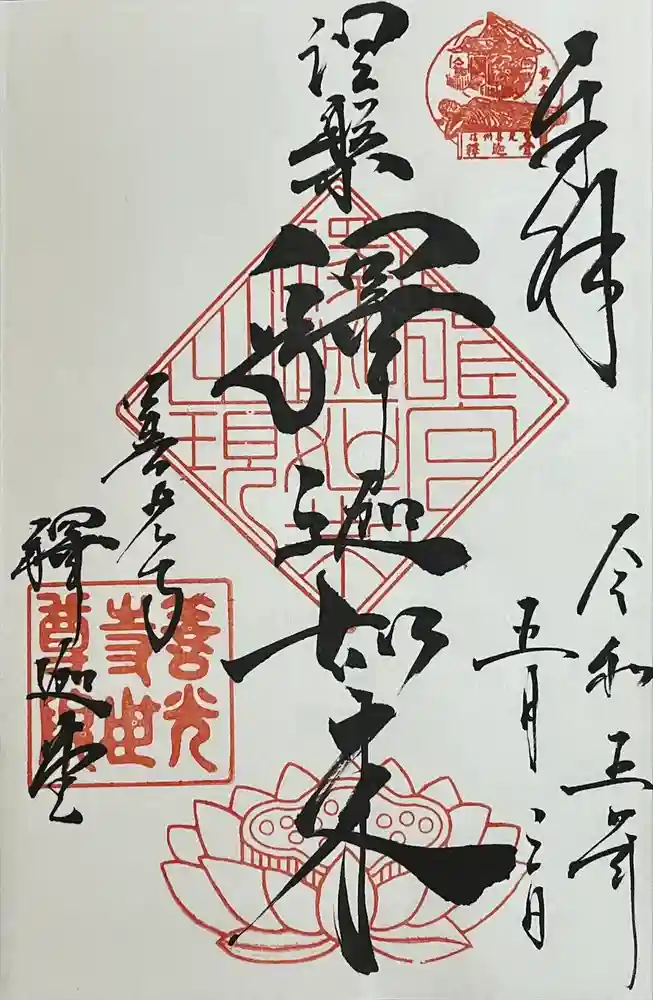 奉拝
令和五年
五月三日
涅槃
釋迦如来
善光寺
釋迦堂
善光
寺世
尊院
釋迦堂